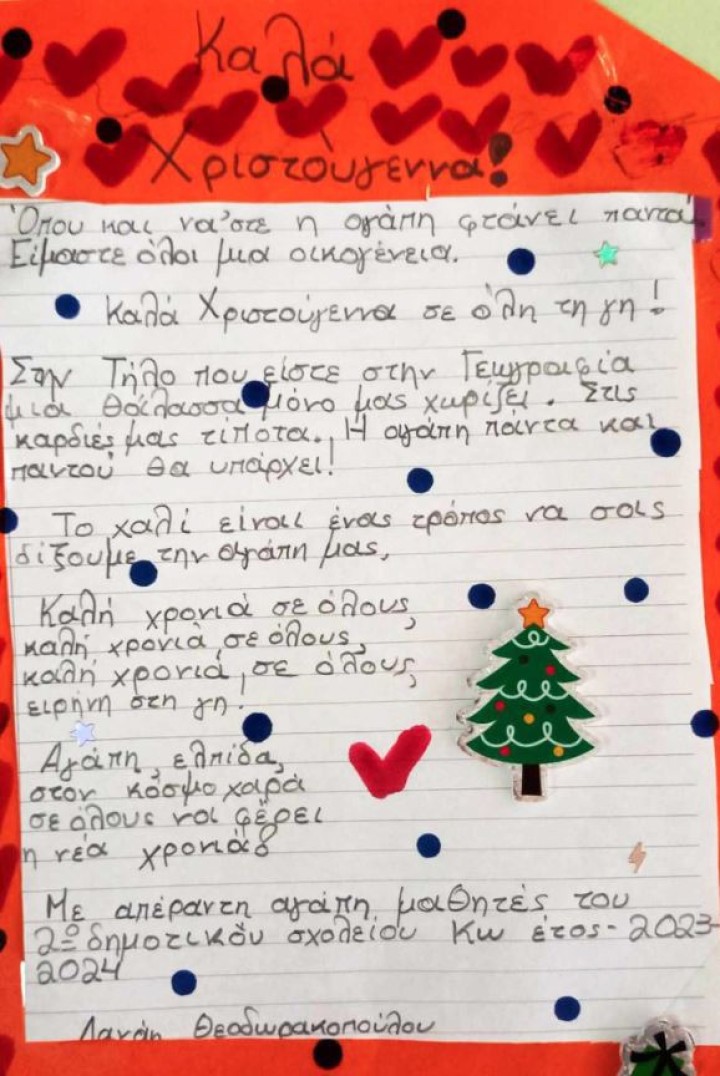 Καλά
Χριστούγεννα!
Όπου και να'στε η αγάπη φτάνει παντα
Είμαστε όλοι μια οικογένεια.
Καλά Χριστούγεννα σε όλη τη γη!
Στην Τήλο που είστε στην Γεωγραφία
μια θάλασσα μόνο μας χωρίζει. Στις
καρδιές μας τίποτα. Η αγάπη πάντα και
παντού θα υπάρχει!
Το χαλί είναι ένας τρόπος να σας
δίξουμε την αγάπη μας,
Καλή χρονιά σε όλους,
καλή χρονιά, σε όλους,
καλή χρονιά, σε όλους,
ειρήνη στη γη!
Αγάπη, ελπίδα,
στον κόσμο χαρά
σε όλους να φέρει
η νέα χρονιά
Με απέραντη αγάπη μαθητές του
2ο δημοτικού σχολείου Κω έτος-2023-
2024
Δανάη Θεοδωρακοπούλου